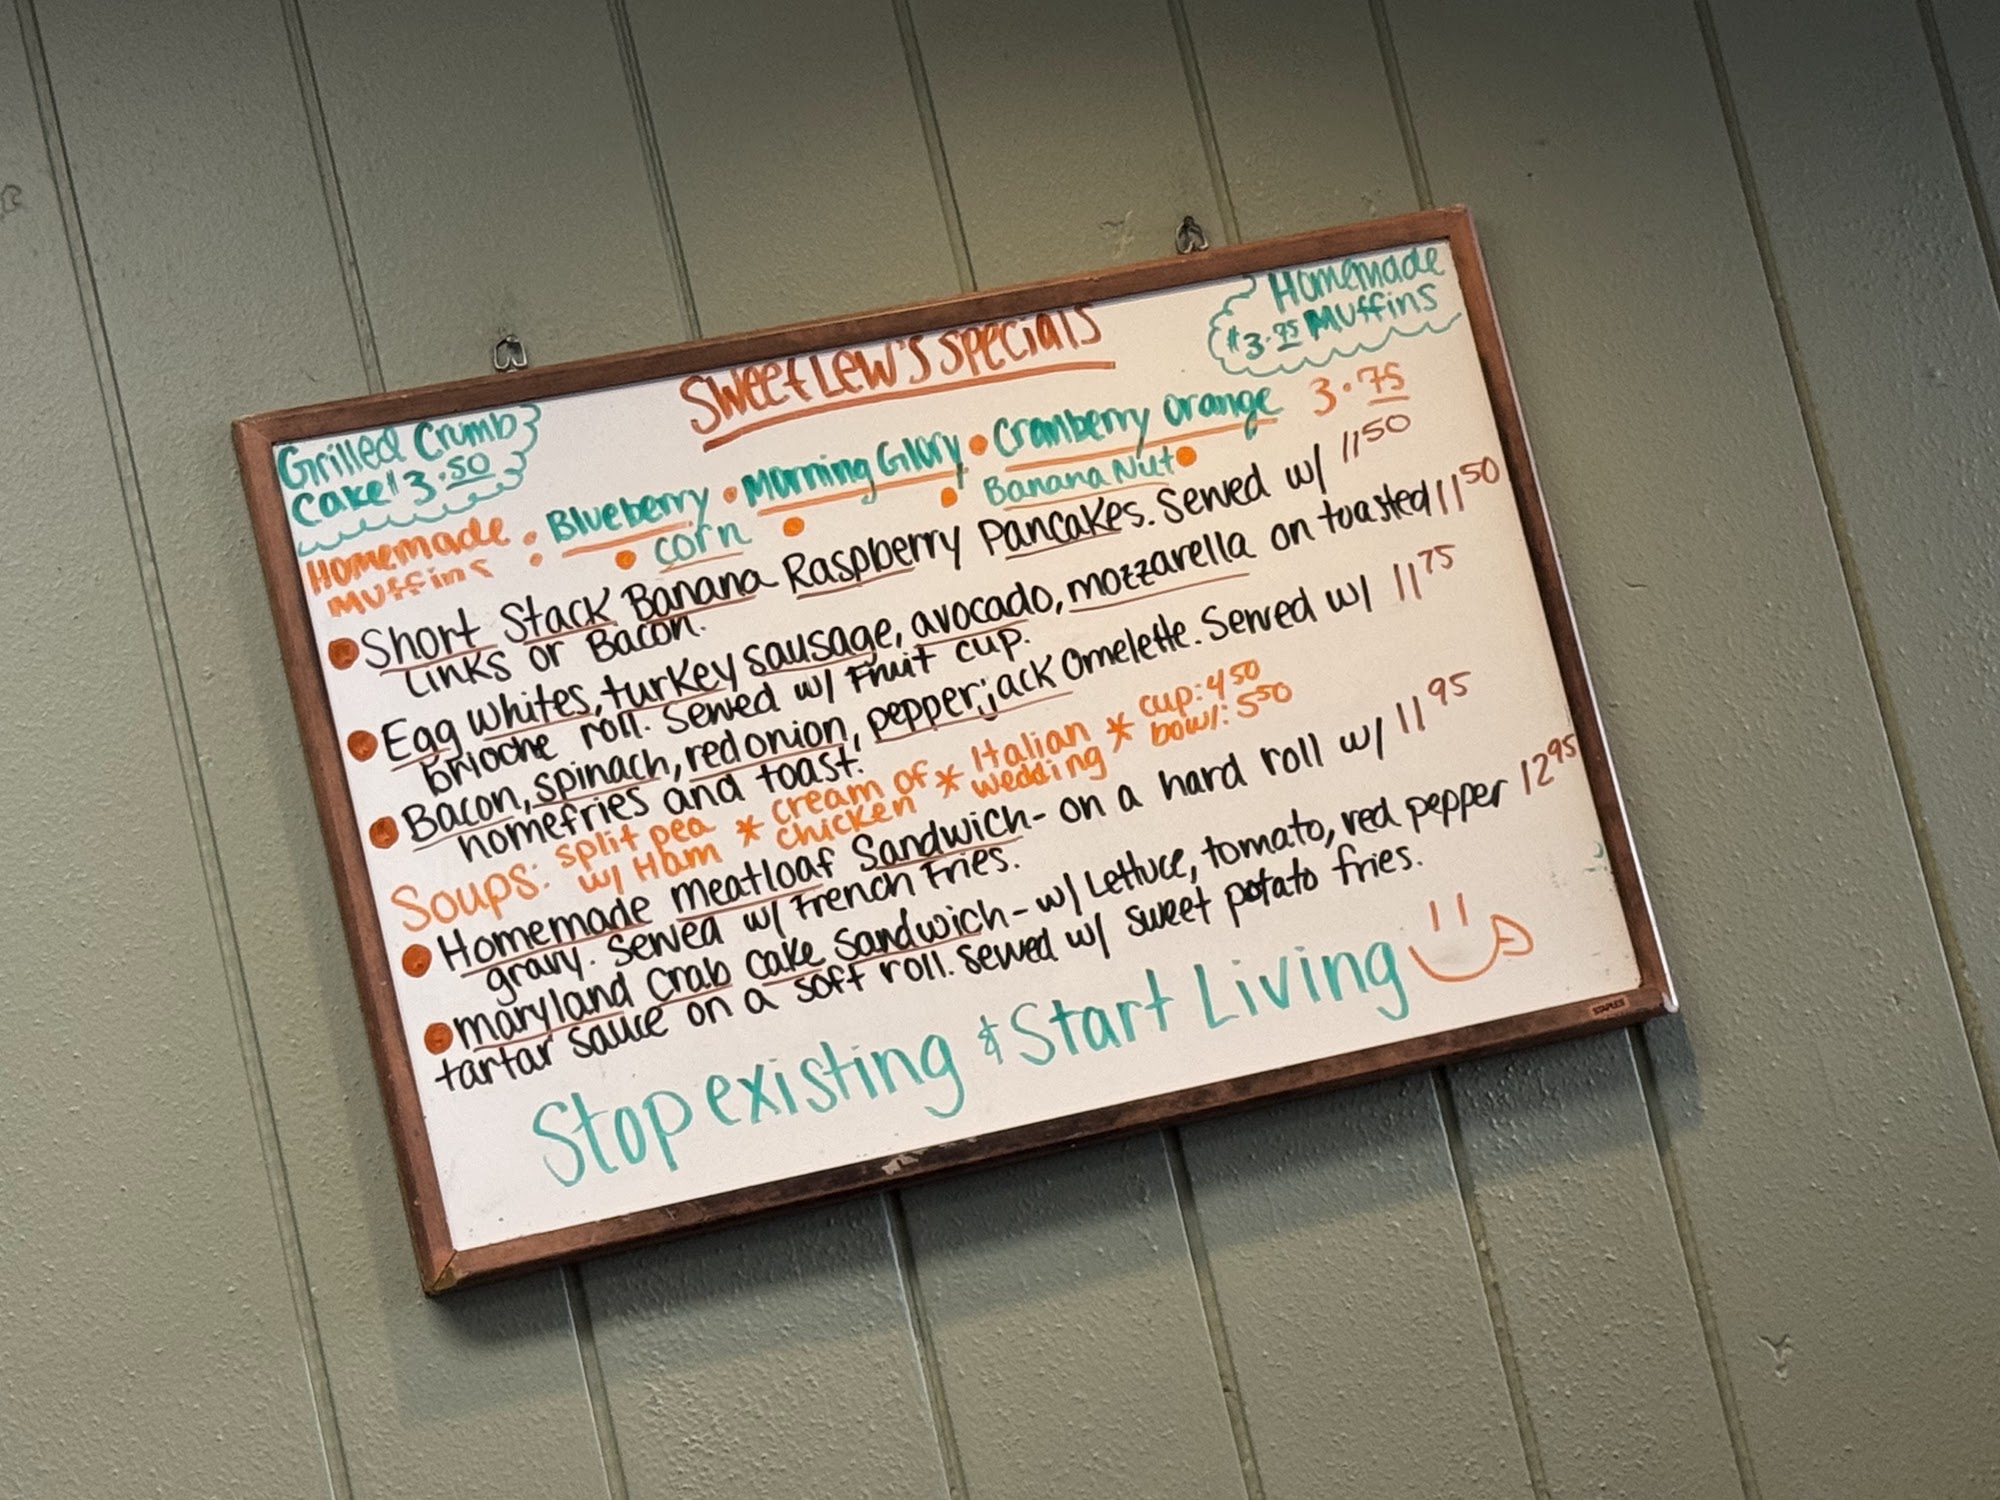 Sweet Lew's Specials
Grilled Crumb
Cake $3.50
Homemade
$3.75 Muffins
Homemade
Muffins
Blueberry • Morning Glory • Cranberry Orange 3.75
• corn • • Banana Nut •
• Short Stack Banana Raspberry Pancakes. Served w/ 11 50
Links or Bacon.
• Egg whites, turkey sausage, avocado, mozzarella on toasted 11 50
brioche roll. Served w/ Fruit cup.
• Bacon, spinach, red onion, pepperjack Omelette. Served w/ 11 75
homefries and toast.
Soups: split pea * cream of * Italian * cup: 4 50
w/ Ham chicken wedding bowl: 5 50
• Homemade meatloaf Sandwich - on a hard roll w/ 11 95
gravy. Served w/ French Fries.
• maryland Crab cake Sandwich - w/ Lettuce, tomato, red pepper 12 95
tartar sauce on a soft roll. Served w/ sweet potato fries.
Stop existing & Start Living
STAPLES